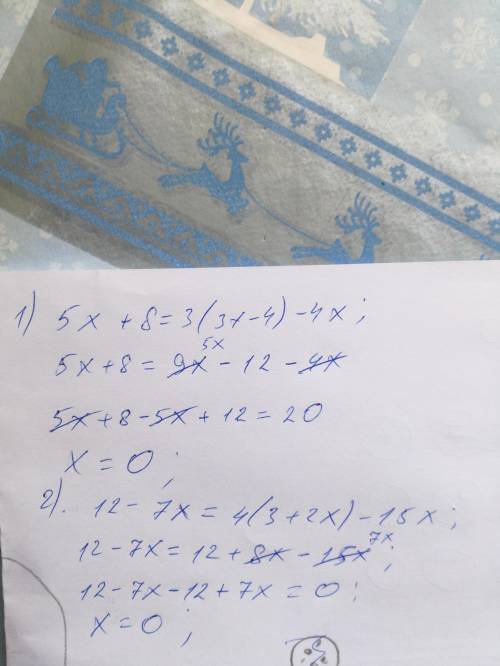 1) 5x + 8 = 3(3x - 4) - 4x;
5x
5x + 8 = 9x - 12 - 4x
5x + 8 - 5x + 12 = 20
x = 0;
2). 12 - 7x = 4(3 + 2x) - 15x;
7x
12 - 7x = 12 + 8x - 15x;
12 - 7x - 12 + 7x = 0;
x = 0;